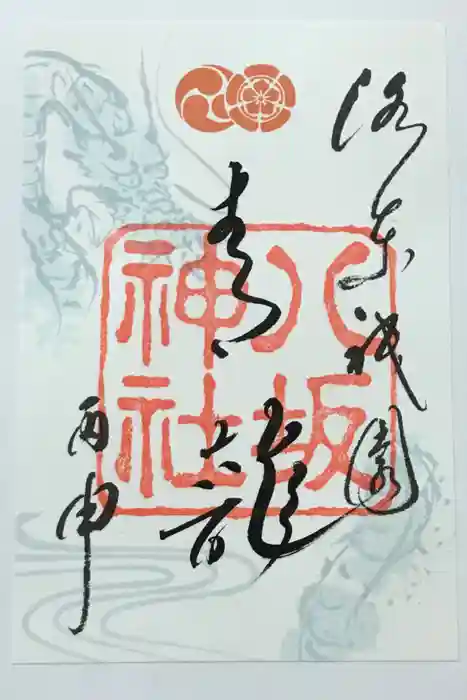 洛東祇園
青龍
八坂
神社
丙申